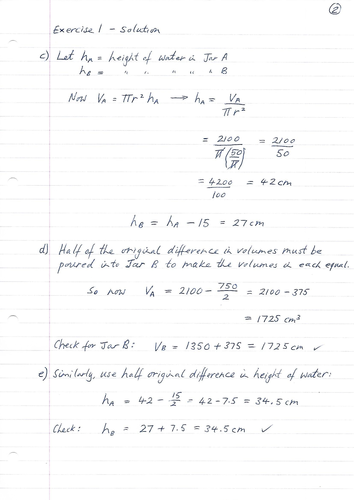 ②
Exercise 1 - Solution
c) Let hA = height of water in Jar A
hB = " " " " " B
Now VA = πr² hA → hA = VA / πr²
= 2100 / π(50/π) = 2100 / 50
= 4200 / 100 = 42 cm
hB = hA - 15 = 27 cm
d) Half of the original difference in volumes must be
poured into Jar B to make the volumes in each equal.
So now VA = 2100 - 750/2 = 2100 - 375
= 1725 cm³
Check for Jar B: VB = 1350 + 375 = 1725 cm ✓
e) Similarly, use half original difference in height of water:
hA = 42 - 15/2 = 42 - 7.5 = 34.5 cm
Check: hB = 27 + 7.5 = 34.5 cm ✓